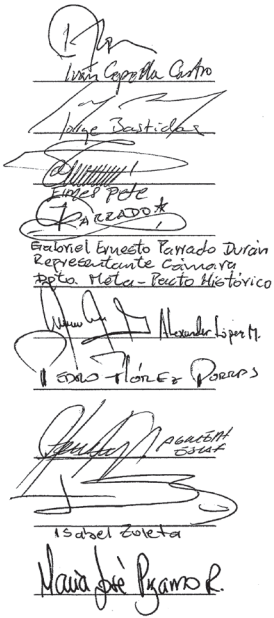 Iván Cepeda Castro
Jorge Bastidas
Ermes Pete
PARRADO
Gabriel Ernesto Parrado Durán
Representante Cámara
Dpto. Meta - Pacto Histórico
Alexander López M.
PEDRO FLÓREZ PORRAS
AGMETH
ESCAF
Isabel Zuleta
María José Pizarro R.